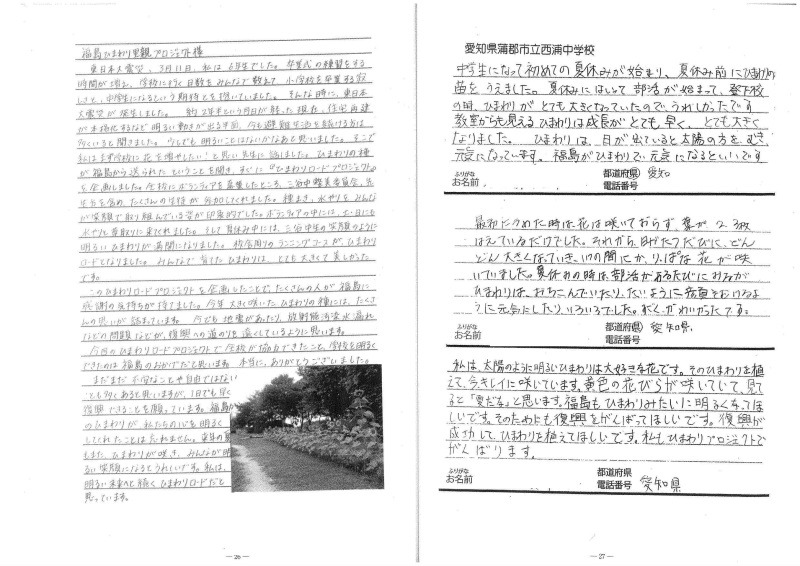 福島ひまわり里親プロジェクト様
東日本大震災、3月11日、私は6年生でした。卒業式の練習をする
時間が増え、学校に行く日数をみんなで数えて、小学校を卒業する寂
しさと、中学生になるという期待とを抱いていました。そんな時に、東日本
大震災が発生しました。 約2年半という月日が経った現在、住宅再建
が本格化するなど明るい動きが出る半面、今も避難生活を続ける方は
多いと聞きました。「少しでも明るいことはないかなあと思いました。そこで
私はまず学校に花を増やしたい!と思い先生に話しました。ひまわりの種
が福島から送られたということを聞き、すぐに『ひまわりロードプロジェクト』
を企画しました。全校にボランティアを募集したところ、三谷中整美委員会、先
生方を含め、たくさんの生徒が参加してくれました。種まき、水やりをみんな
が笑顔で取り組んでいる姿が印象的でした。ボランティアの中には、土・日にも
水やりと草取りに来てくれました。そして夏休み中には、三谷中生の笑顔のように
明るいひまわりが満開になりました。校舎周りのランニングコースが、ひまわり
ロードとなりました。みんなで育てたひまわりは、とても大きくて美しかった
です。
このひまわりロードプロジェクトを企画したことで、たくさんの人が福島に
感謝の気持ちが持てました。今年大きく咲いたひまわりの種には、たくさ
んの思いが詰まっています。 今でも地震があったり、放射能汚染水漏れ
などの問題などが、復興への道のりを遠くしているように思います。
今回のひまわりロードプロジェクトで全校が協力できたこと、学校を明るく
できたのは福島のおかげだと思います。本当に、ありがとうございました。
まだまだ不安なことや自由ではない
ことも多くあると思いますが、1日でも早く
復興できることを願っています。福島か
のひまわりが私たちの心を明るく
してくれたことは忘れません。来年の夏
もまた、ひまわりが咲き、みんなが明
るい笑顔になるとうれしいです。私は、
明るい未来へと続くひまわりロードだと
思っています。
― 26 ―
愛知県蒲郡市立西浦中学校
中学生になって初めての夏休みが始まり、夏休み前にひまわりの
苗をうえました。夏休みにはいって部活が始まって、登下校
の時、ひまわりがとても大きくなっていたので、うれしかったです
教室から見えるひまわりは成長がとても早く、とても大きく
なりました。 ひまわりは、日が出ていると太陽の方をむき、
元気になっています。福島がひまわりで元気になるといいです
ふりがな
お名前
都道府県 愛知
電話番号
最初にうめた時は花は咲いておらず、葉が2、3枚
はえているだけでした。それから、日がたつたびに、どん
どん大きくなっていき、いつの間にか、りっぱな花が咲
いていました。夏休みの時は部活があるたびにおるが
ひまわりは、おちこんでいたり、たいように顔をむけるよ
うに元気にしたり、いろいろでした。ぼくかわいかったです。
ふりがな
お名前
都道府県 愛知県
電話番号
私は、太陽のように明るいひまわりは大好きな花です。そのひまわりを植
えて、今キレイに咲いています。黄色の花びらが咲いていて、見て
ると「夏だな」と思います。福島もひまわりみたいに明るくなってほ
しいです。そのためにも復興をがんばってほしいです。復興が
成功して、ひまわりを植えてほしいです。私もひまわりプロジェクトで
がんばります。
ふりがな
お名前
都道府県
電話番号 愛知県
― 27 ―